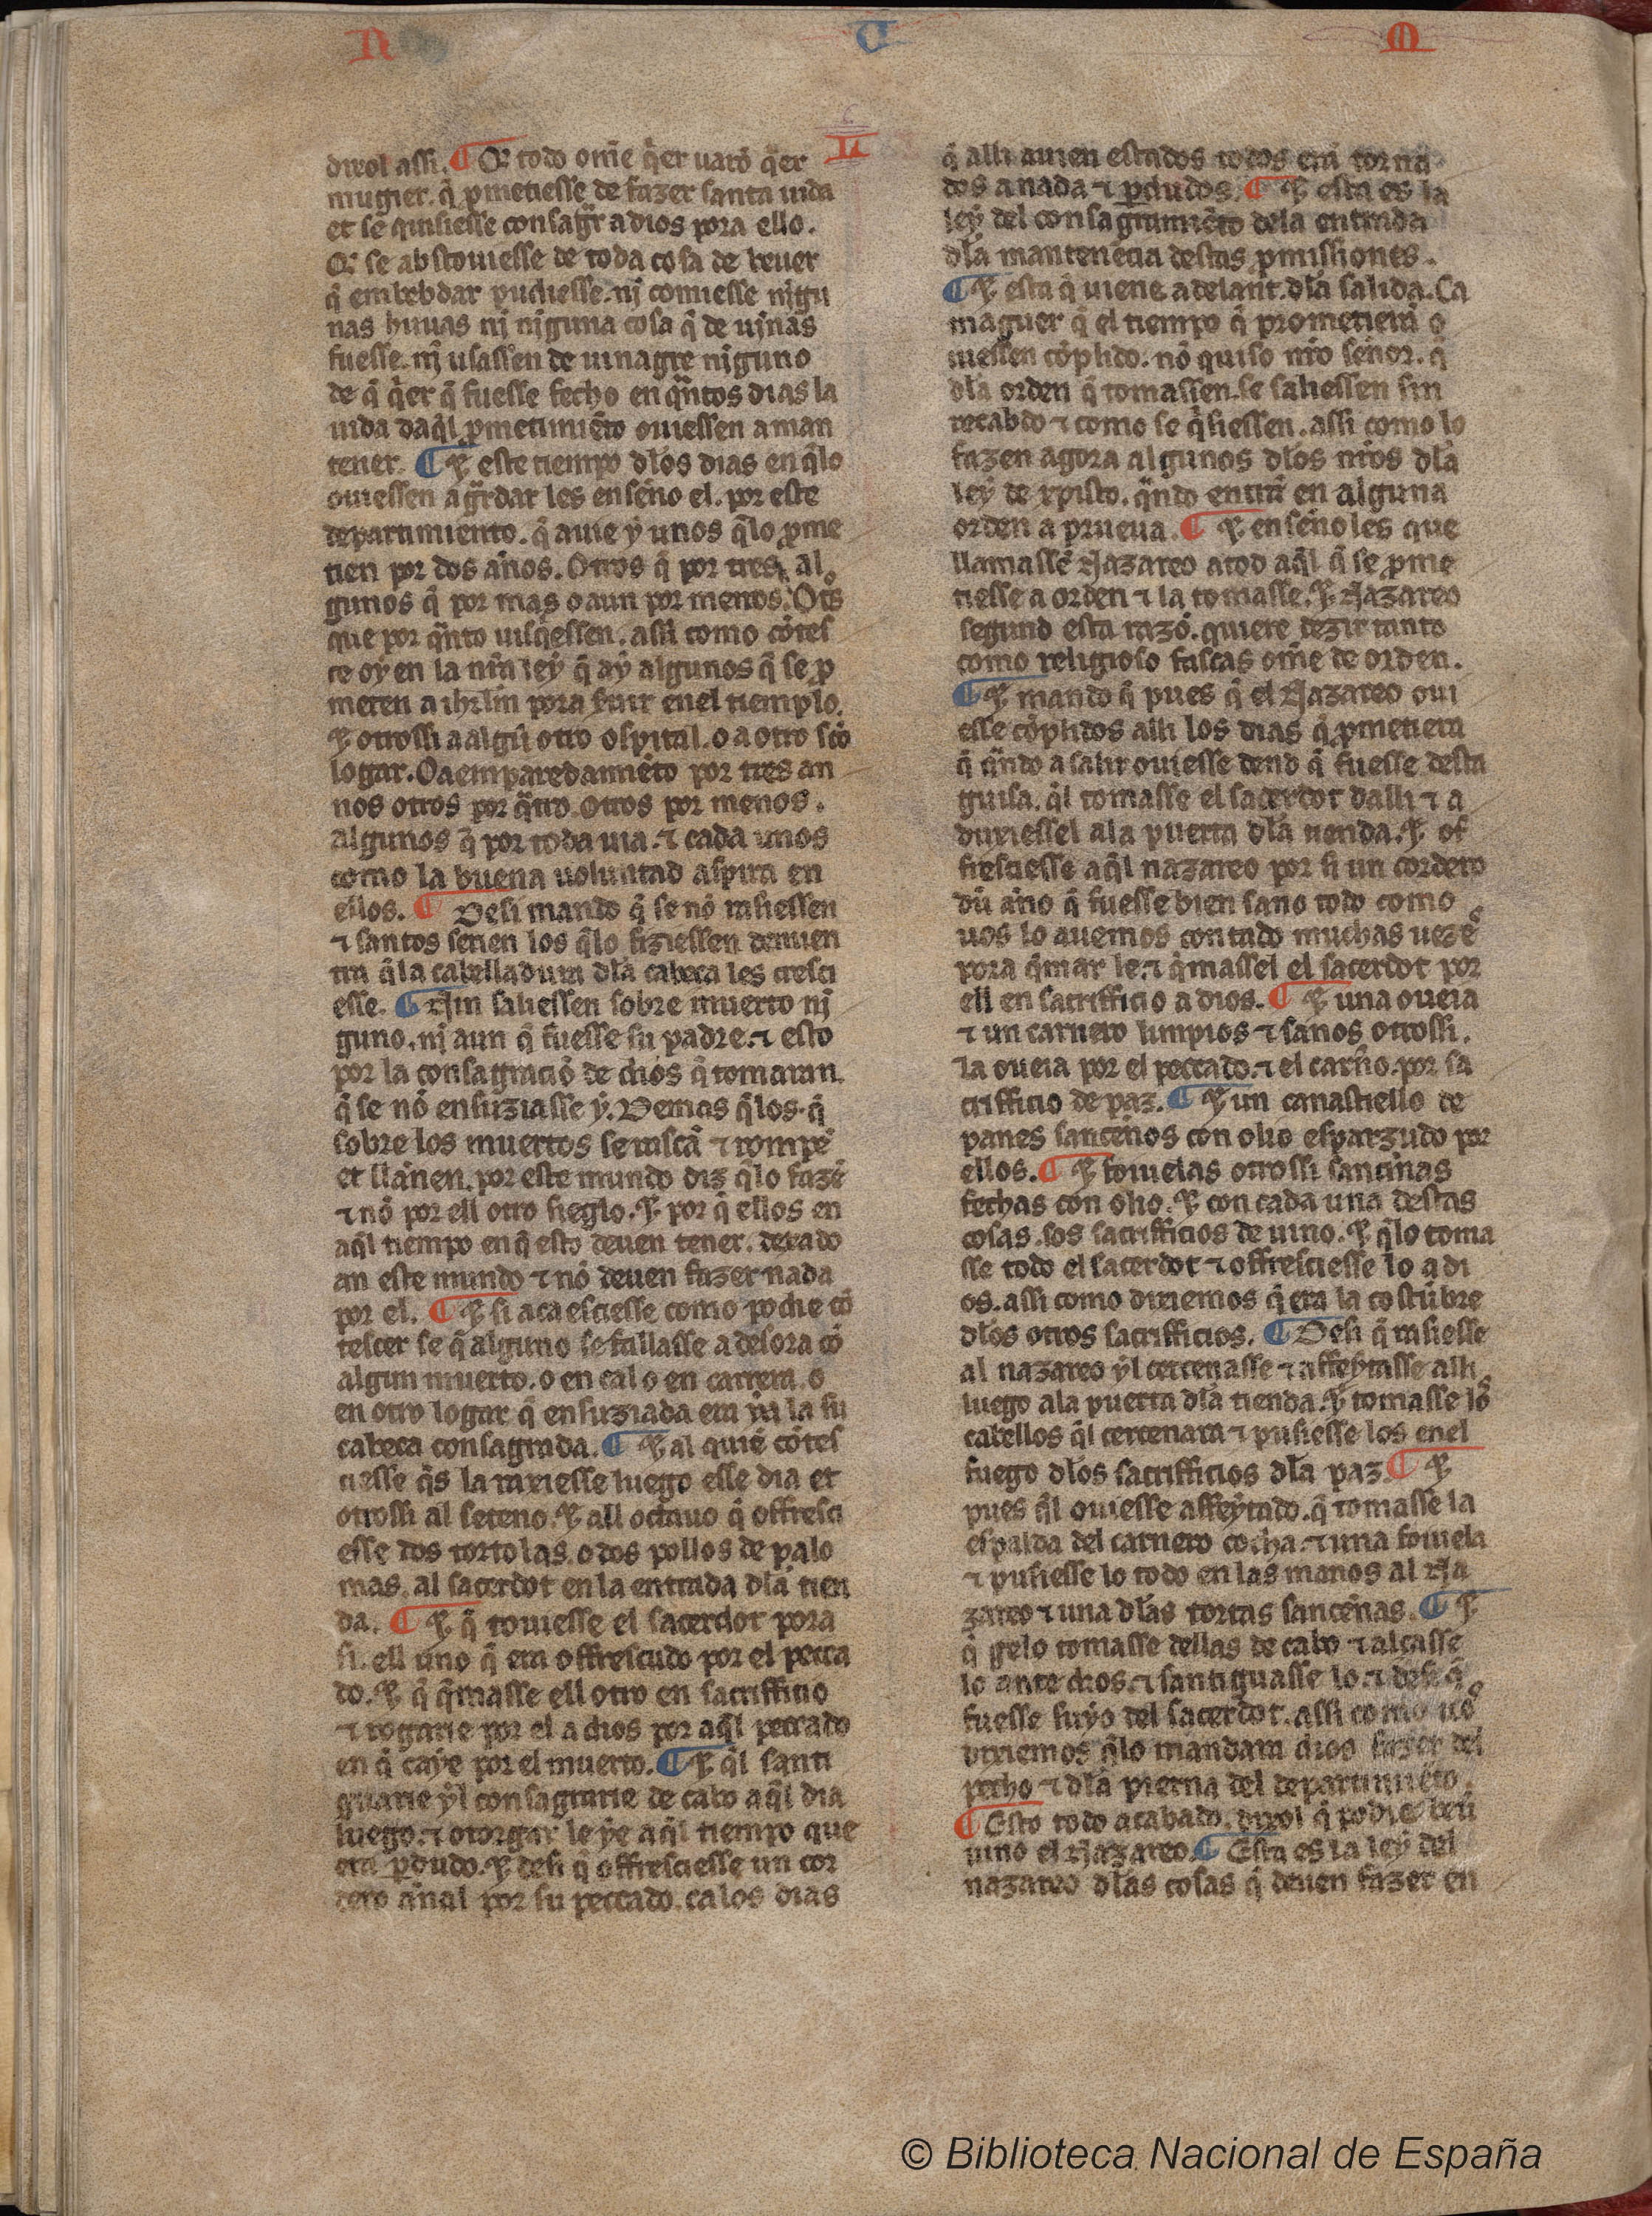 N U M
L
dixol assi. ¶ Q̃ todo om̃e q̃er uarõ q̃er
mugier. q̃ ꝓmetiesse de fazer santa uida
et se quisiesse consagr̃r a dios pora ello.
Q̃ se abstouiesse de toda cosa de beuer
q̃ embebdar pudiesse. nj comiesse nĩgu
nas huuas nj nĩguna cosa q̃ de ujnãs
fuesse. nj usassen de uinagre njguno
de q̃ q̃er q̃ fuesse fecho en q̃ntos dias la
uida daq̃l ꝓmetimiẽto ouiessen a man
tener. ¶ Ⴒ este tiempo dlõs dias en q̃lo
ouiessen a gr̃dar les ensẽno el. por este
departimiento. q̃ auie ý unos q̃lo ꝓme
tien por dos ãnos. Otros q̃ por tres. al
gunos q̃ por mas o aun por menos. Otõs
que por q̃nto uisq̃essen. assi como cõtes
ce oý en la nr̃a leý q̃ aý algunos q̃ se ꝓ
meten a ihrl̃m pora s̃uir enel tiemplo.
⁊ otrossi a algũ otro ospital. o a otro sc̃o
logar. O a emparedamiẽto por tres an
nos otros por q̃tro. Otros por menos.
algunos q̃ por toda uia. ⁊ cada unos
como la buena uoluntad aspira en
ellos. ¶ Desi mando q̃ se nõ rasiessen
⁊ santos serien los q̃lo fiziessen demien
tra q̃ la cabelladura dlã cabeca les cresci
esse. ¶ Nin saliessen sobre muerto nj
guno. nj aun q̃ fuesse su padre. ⁊ esto
por la consagraciõ de dios q̃ tomaran.
q̃ se nõ ensuziasse ý. Demas q̃ los q̃
sobre los muertos se rascã ⁊ rompẽ
et llãnen. por este mundo diz q̃lo fazẽ
⁊ nõ por ell otro sieglo. ⁊ por q̃ ellos en
aq̃l tiempo en q̃ esto deuen tener. dexado
an este mundo ⁊ nõ deuen fazer nada
por el. ¶ ⁊ si acaesciesse como podie cõ
tescer se q̃ alguno se fallasse a desora cõ
algun muerto. o en cal o en carrera. o
en otro logar q̃ ensuziada era ya la su
cabeca consagrada. ¶ ⁊ al quiẽ cõtes
ciesse q̃s la raxiesse luego esse dia et
otrossi al seteno. ⁊ all octauo q̃ offresci
esse dos tortolas. o dos pollos de palo
mas. al sacerdot en la entrada dlã tien
da. ¶ ⁊ q̃ tomesse el sacerdot pora
si. ell uno q̃ era offrescudo por el pecca
do. ⁊ q̃ q̃masse ell otro en sacrifficio
⁊ rogarie por el a dios por aq̃l peccado
en q̃ caýe por el muerto. ¶ ⁊ q̃l santi
guarie ýl consagrarie de cabo aq̃l dia
luego. ⁊ otorgar le ýe aq̃l tiempo que
era ꝑdudo. ⁊ desi q̃ offresciesse un cor
dero ãnal por su peccado. ca los dias
q̃ alli auien estados todos erã torna
dos a nada ⁊ ꝑdudos. ¶ ⁊ esta es la
leý del consagramiẽto dela entrada
dlã mantenẽcia destas ꝓmissiones.
¶ ⁊ esta q̃ uiene adelant. dlã salida. Ca
maguer q̃ el tiempo q̃ prometierã o
uiessen cõplido. nõ quiso nr̃o sẽnor. q̃
dlã orden q̃ tomassen. se saliessen sin
recabdo ⁊ como se q̃siessen. assi como lo
fazen agora algunos dlõs nr̃os dlã
leý de xpisto. q̃ndo entrã en alguna
orden a prueua. ¶ ⁊ ensẽnoles que
llamassẽ Nazareo a tod aq̃l q̃ se ꝓme
tiesse a orden ⁊ la tomasse. ⁊ Nazareo
segund esta razõ. quiere dezir tanto
como religioso fascas om̃e de orden.
¶ ⁊ mando q̃ pues q̃ el Nazareo oui
esse cõplidos alli los dias q̃ ꝓmetiera
q̃ q̃ndo a salir ouiesse dend q̃ fuesse desta
guisa. q̃l tomasse el sacerdot dalli ⁊ a
duxiessel ala puerta dlã tienda. ⁊ of
fresciesse aq̃l nazareo por si un cordero
dũ ãno q̃ fuesse bien sano todo como
uos lo auemos contado muchas uezẽ
pora q̃mar le. ⁊ q̃massel el sacerdot por
ell en sacrifficio a dios. ¶ ⁊ una oueia
⁊ un carnero limpios ⁊ sanos otrossi.
La oueia por el peccado. ⁊ el carño. por sa
crifficio de paz. ¶ ⁊ un canastiello de
panes sancẽnos con olio esparzudo por
ellos. ¶ ⁊ fouielas otrossi sancẽnas
fechas con olio. ⁊ con cada una destas
cosas. los sacrifficios de uino. ⁊ q̃lo toma
sse todo el sacerdot ⁊ offresciesse lo a di
os. assi como dixiemos q̃ era la costũbre
dlõs otros sacrifficios. ¶ Desi q̃ rasiesse
al nazareo ýl cercenasse ⁊ affeýtasse alli
luego ala puerta dlã tienda. ⁊ tomasse lõ
cabellos q̃l cercenara ⁊ pusiesse los enel
fuego dlõs sacrifficios dlã paz. ¶ ⁊
pues q̃l ouiesse affeýtado. q̃ tomasse la
espalda del carnero cocha. ⁊ una fouiela
⁊ pusiesse lo todo en las manos al Na
zareo ⁊ una dlãs tortas sancẽnas. ¶ ⁊
q̃ gelo tomasse dellas de cabo ⁊ alcasse
lo ante dios. ⁊ santiguasse lo. ⁊ desi q̃
fuesse suýo del sacerdot. assi como uõ
dixiemos q̃lo mandara dios fazer del
pecho ⁊ dlã pierna del departimiẽto.
¶ Esto todo acabado. dixol q̃ podie beũ
uino el Nazareo. ¶ Esta es la leý del
nazareo dlãs cosas q̃ deuen fazer en
© Biblioteca Nacional de España